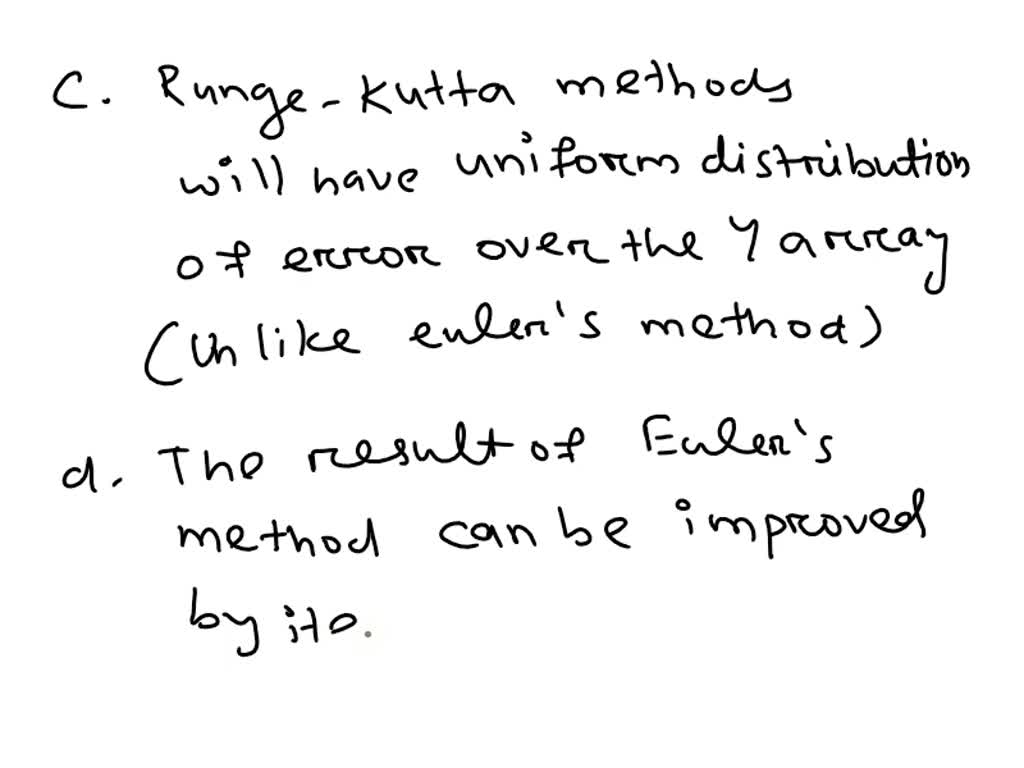 C. Runge-Kutta methods
will have uniform distribution
of error over the Y array
(Unlike euler's method)
d. The result of Euler's
method can be improved
by ito.